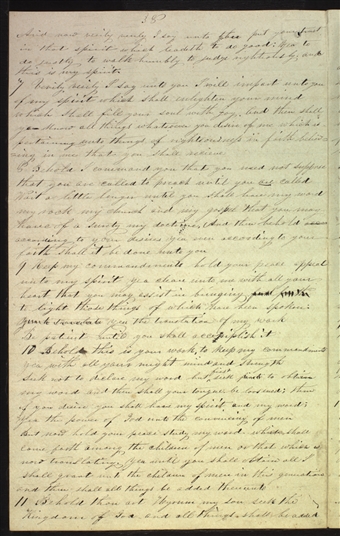 38
And now verily verily I say unto thee put your trust
in that spirit which leadeth to do good: Yea to
do justly to walk humbly to judge righteously, and
this is my spirit.
7 Verily verily I say unto you I will impart unto you
of my spirit which shall enlighten your mind
which shall fill your soul with joy, And then shall
ye know all things whatsoever you desire of me which is
pertaining unto things of righteousness in faith believ-
ing in me that you shall receive
8 Behold I command you that you need not suppose
that you are called to preach until you are called
Wait a little longer until you shall have my word
my rock my church and my gospel that you may
know of a surety my doctrine, And then behold
according to your desires yea even according to your
faith shall it be done unto you
9 Keep my commandments hold your peace appeal
unto my spirit yea cleave unto me with all your
heart that you may assist in bringing
to light those things of which has been spoken:
Yea the translation of my work
Be patient until you shall accomplish it
10 Behold this is your work to keep my commandments
yea with all your might mind and strength
Seek not to declare my word but first seek to obtain
my word and then shall your tongue be loosed; then
if you desire you shall have my Spirit and my word;
Yea the power of God unto the convincing of men
But now hold your peace study my word which shall
come forth among the children of men or that which is
now translating Yea until you shall obtain all I
shall grant unto the children of men in this generation
and then shall all things be added thereunto
11 Behold thou art Hyrum my son seek the
Kingdom of God and all things shall be added